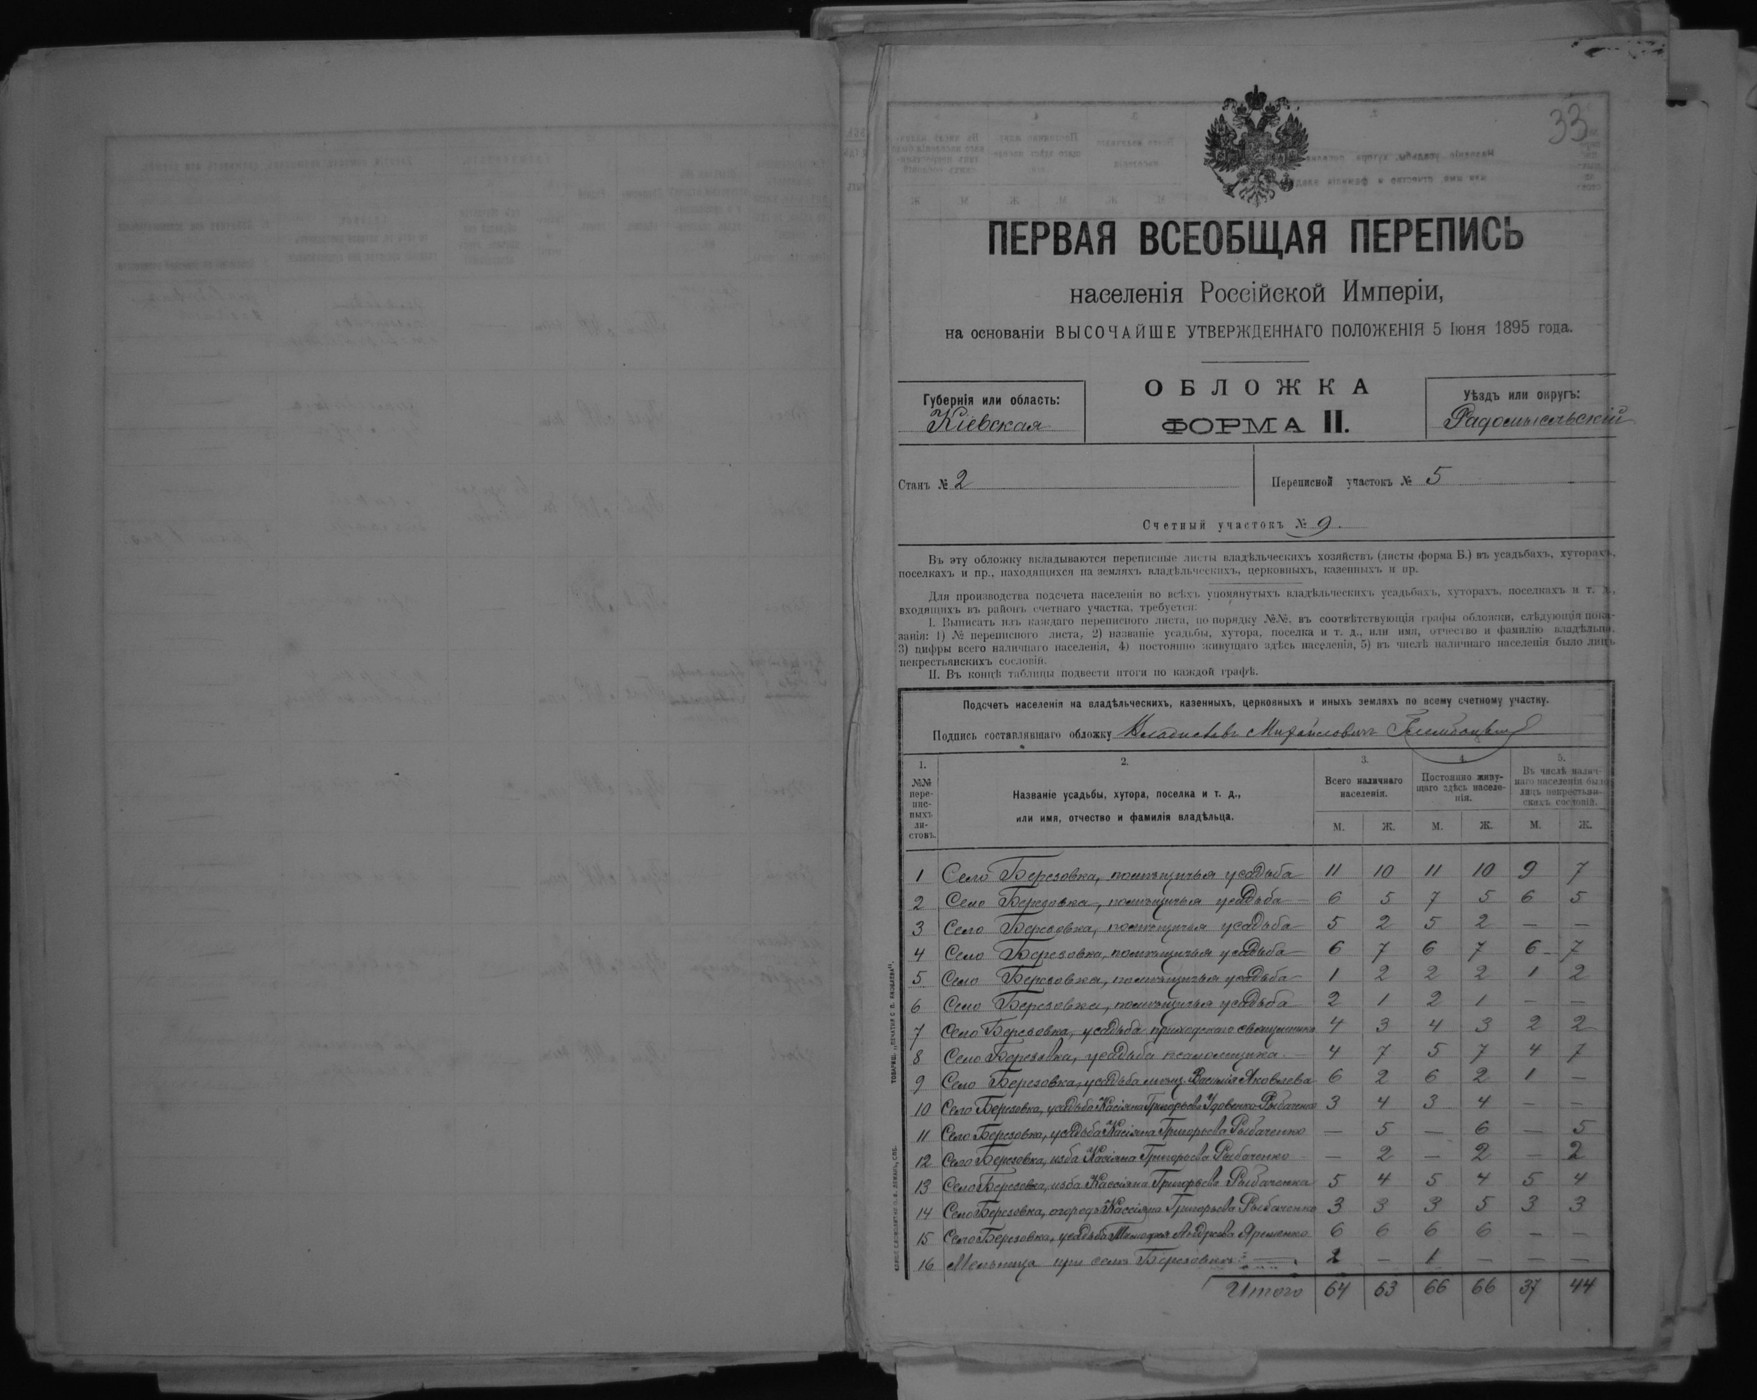 33
ПЕРВАЯ ВСЕОБЩАЯ ПЕРЕПИСЬ
населенія Россійской Имперіи,
на основаніи ВЫСОЧАЙШЕ УТВЕРЖДЕННАГО ПОЛОЖЕНІЯ 5 Іюня 1895 года.
Губернія или область:
Кіевская
ОБЛОЖКА
ФОРМА II.
Уѣздъ или округъ:
Радомысльскій
Станъ № 2
Переписной участокъ № 5
Счетный участокъ № 9.
Въ эту обложку вкладываются переписные листы владѣльческихъ хозяйствъ (листы форма Б.) въ усадьбахъ, хуторахъ,
поселкахъ и пр., находящихся на земляхъ владѣльческихъ, церковныхъ, казенныхъ и пр.
Для производства подсчета населенія во всѣхъ упомянутыхъ владѣльческихъ усадьбахъ, хуторахъ, поселкахъ и т. д.,
входящихъ въ районъ счетнаго участка, требуется:
I. Выписать изъ каждаго переписного листа, по порядку №№, въ соотвѣтствующія графы обложки, слѣдующія пока-
занія: 1) № переписного листа, 2) названіе усадьбы, хутора, поселка и т. д., или имя, отчество и фамилію владѣльца,
3) цифры всего наличнаго населенія, 4) постоянно живущаго здѣсь населенія, 5) въ числѣ наличнаго населенія было лицъ
некрестьянскихъ сословій.
II. Въ концѣ таблицы подвести итоги по каждой графѣ.
Подсчетъ населенія на владѣльческихъ, казенныхъ, церковныхъ и иныхъ земляхъ по всему счетному участку.
Подпись составлявшаго обложку Владиславъ Михайловичъ
1. 2. 3. 4. 5.
№№ пере-пис-ныхъ ли-стовъ.
Названіе усадьбы, хутора, поселка и т. д.,
или имя, отчество и фамилія владѣльца.
Всего наличнаго населенія.
Постоянно живу-щаго здѣсь населе-нія.
Въ числѣ налич-наго населенія было лицъ некрестьян-скихъ сословій.
М. Ж. М. Ж. М. Ж.
1 Село Березовка, помѣщичья усадьба 11 10 11 10 9 7
2 Село Березовка, помѣщичья усадьба 6 5 7 5 6 5
3 Село Березовка, помѣщичья усадьба 5 2 5 2 — —
4 Село Березовка, помѣщичья усадьба 6 7 6 7 6 7
5 Село Березовка, помѣщичья усадьба 1 2 2 2 1 2
6 Село Березовка, помѣщичья усадьба 2 1 2 1 — —
7 Село Березовка, усадьба приходскаго священника 4 3 4 3 2 2
8 Село Березовка, усадьба псаломщика 4 7 5 7 4 7
9 Село Березовка, усадьба Василія Яковлева 6 2 6 2 1 —
10 Село Березовка, усадьба Касіяна Григорьева Удовенко-Рыбаченко 3 4 3 4 — —
11 Село Березовка, усадьба Касіяна Григорьева Рыбаченко — 5 — 6 — 5
12 Село Березовка, изба Касіяна Григорьева Рыбаченко — 2 — 2 — 2
13 Село Березовка, изба Кассіяна Григорьева Рыбаченка 5 4 5 4 5 4
14 Село Березовка, огородъ Кассіяна Григорьева Рыбаченко 3 3 3 5 3 3
15 Село Березовка, усадьба Яременко 6 6 6 6 — —
16 Мельница при селѣ Березовкѣ 2 — 1 — — —
Итого 64 63 66 66 37 44